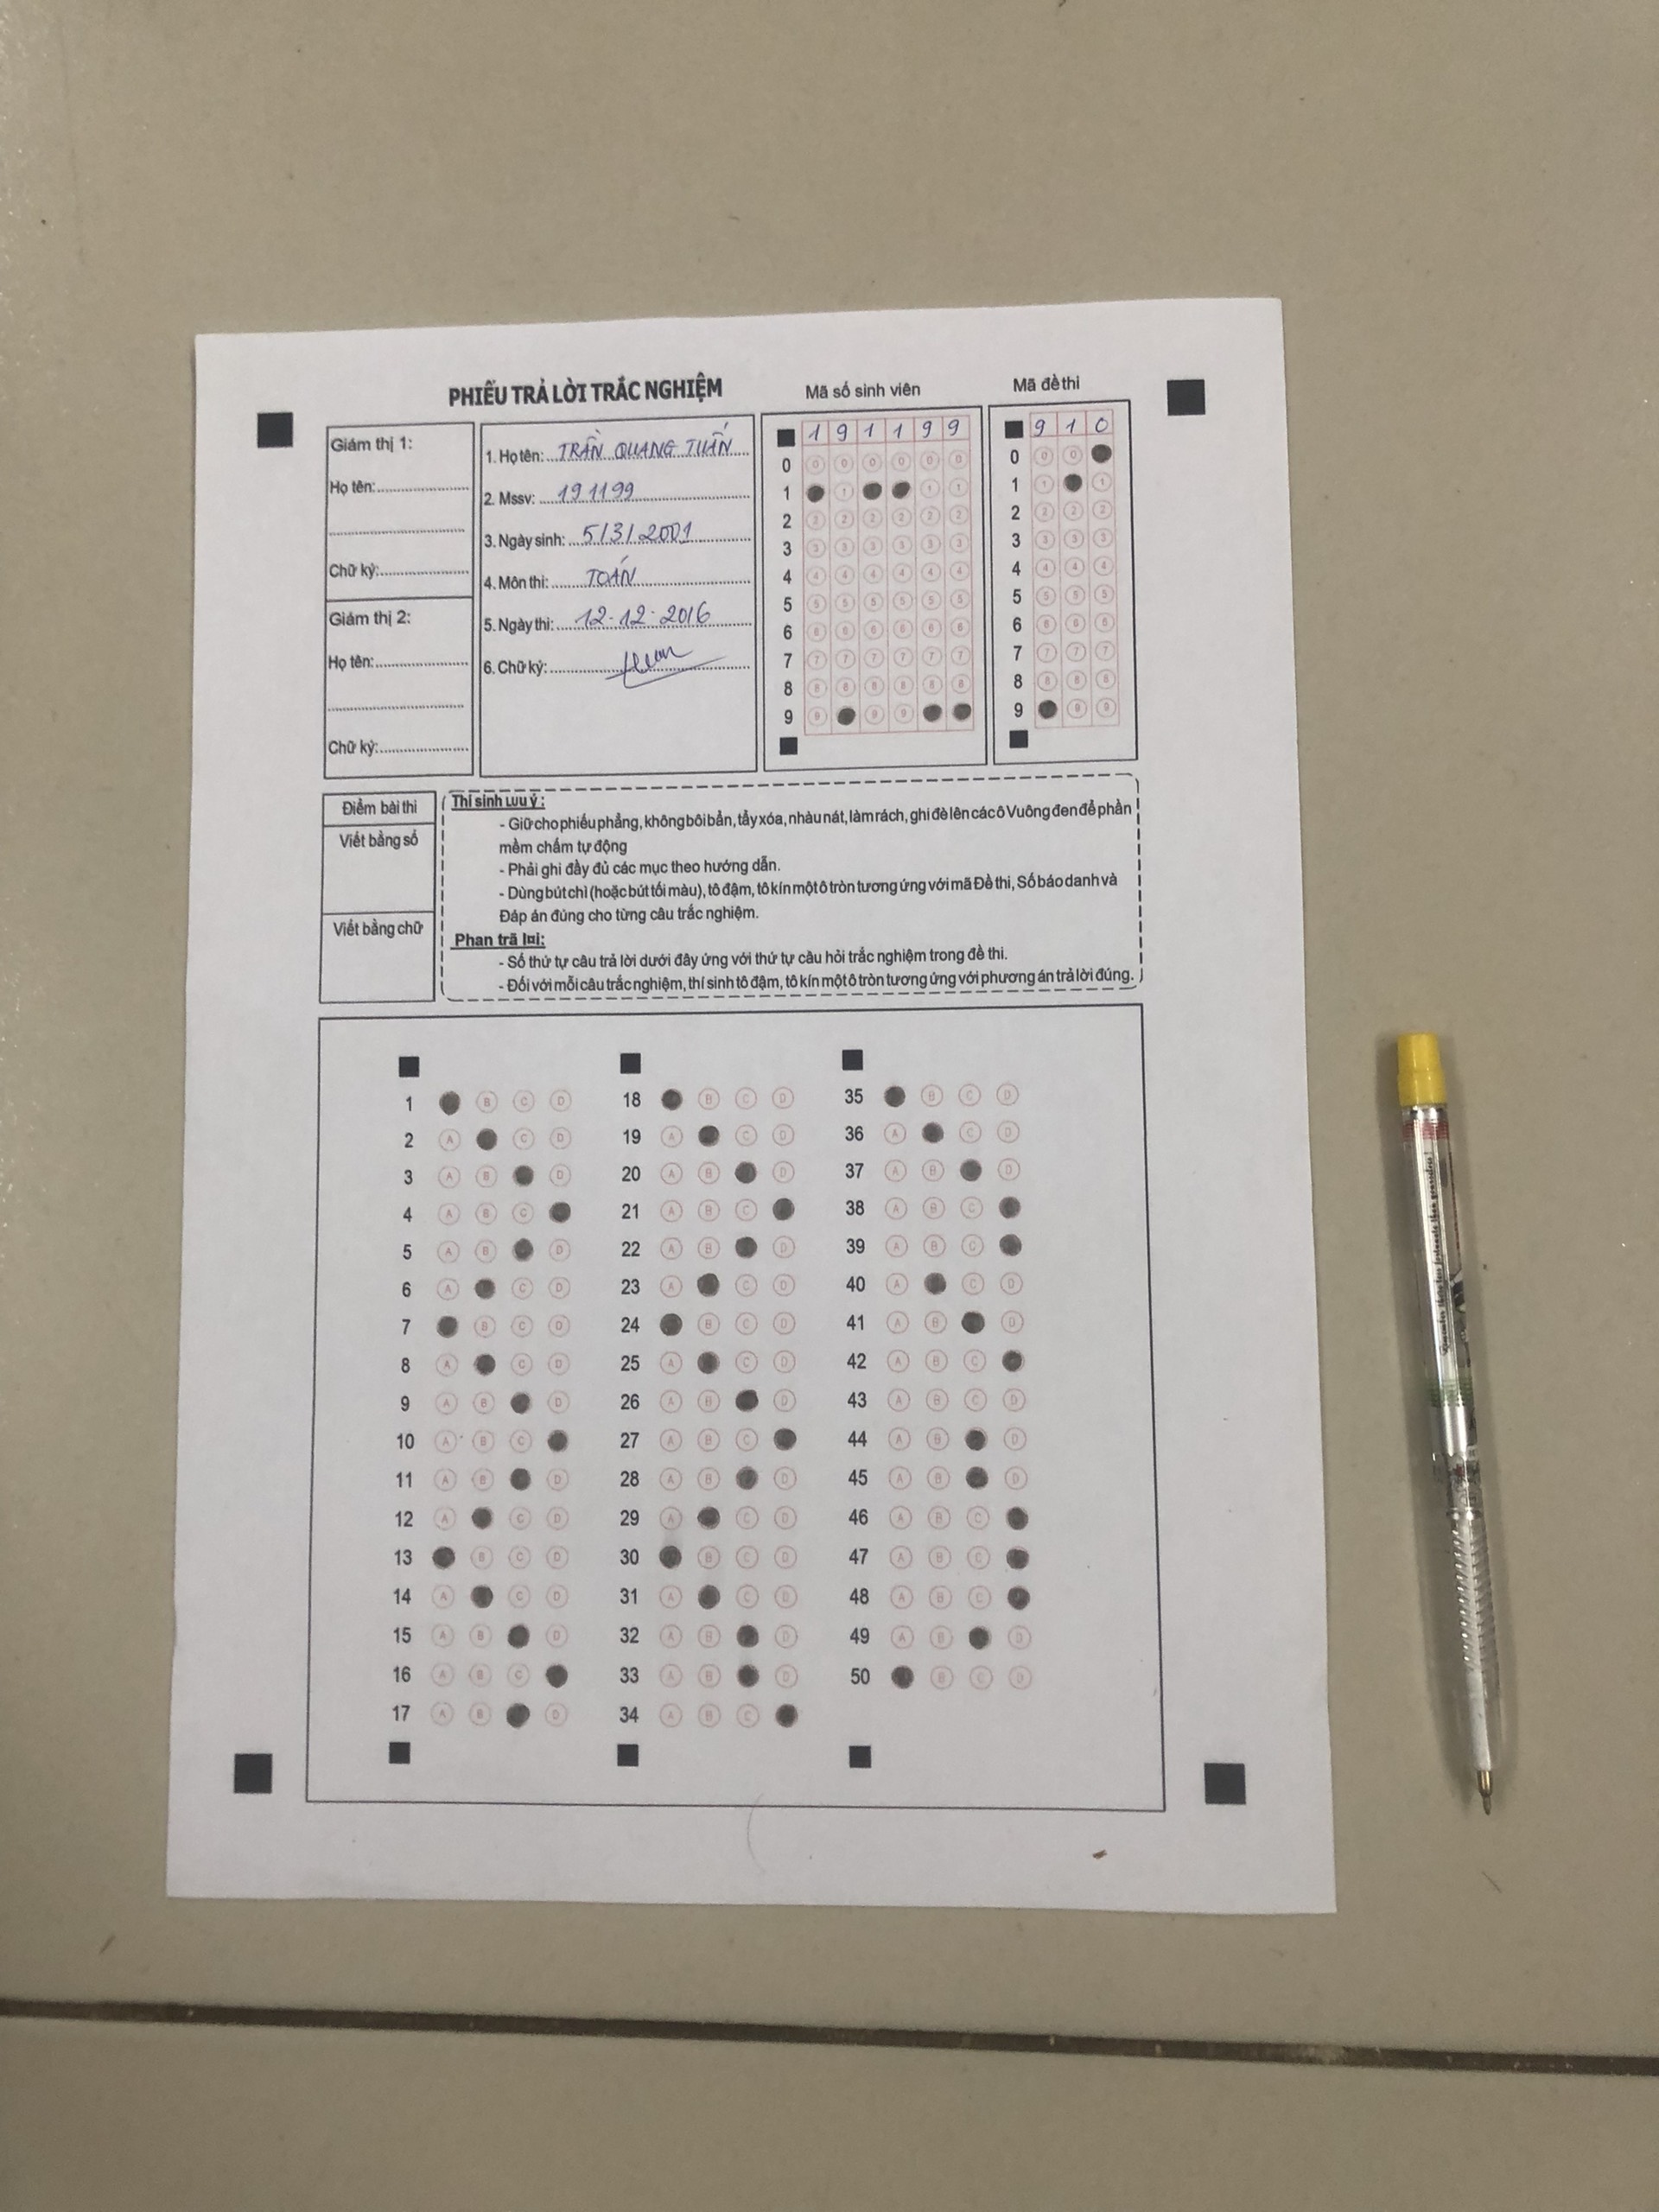 PHIẾU TRẢ LỜI TRẮC NGHIỆM
Mã số sinh viên
Mã đề thi
Giám thị 1:
Họ tên:
Chữ ký:
Giám thị 2:
Họ tên:
Chữ ký:
1. Họ tên: TRẦN QUANG TUẤN
2. Mssv: 191199
3. Ngày sinh: 5/3/2001
4. Môn thi: TOÁN
5. Ngày thi: 12.12.2016
6. Chữ ký:
1 9 1 1 9 9
0 0 0 0 0 0 0
1 1 1 1
2 2 2 2 2 2 2
3 3 3 3 3 3 3
4 4 4 4 4 4 4
5 5 5 5 5 5 5
6 6 6 6 6 6 6
7 7 7 7 7 7 7
8 8 8 8 8 8 8
9 9 9 9
9 1 0
0 0 0
1 1 1
2 2 2 2
3 3 3 3
4 4 4 4
5 5 5 5
6 6 6 6
7 7 7 7
8 8 8 8
9 9 9
Điểm bài thi
Viết bằng số
Viết bằng chữ
Thí sinh lưu ý:
- Giữ cho phiếu phẳng, không bôi bẩn, tẩy xóa, nhàu nát, làm rách, ghi đè lên các ô Vuông đen để phần
mềm chấm tự động
- Phải ghi đầy đủ các mục theo hướng dẫn.
- Dùng bút chì (hoặc bút tối màu), tô đậm, tô kín một ô tròn tương ứng với mã Đề thi, Số báo danh và
Đáp án đúng cho từng câu trắc nghiệm.
Phan trã lời:
- Số thứ tự câu trả lời dưới đây ứng với thứ tự câu hỏi trắc nghiệm trong đề thi.
- Đối với mỗi câu trắc nghiệm, thí sinh tô đậm, tô kín một ô tròn tương ứng với phương án trả lời đúng.
1 B C D
2 A C D
3 A B D
4 A B C
5 A B D
6 A C D
7 B C D
8 A C D
9 A B D
10 A B C
11 A B D
12 A C D
13 B C D
14 A C D
15 A B D
16 A B C
17 A B D
18 B C D
19 A C D
20 A B D
21 A B C
22 A B D
23 A C D
24 B C D
25 A C D
26 A B D
27 A B C
28 A B D
29 A C D
30 B C D
31 A C D
32 A B D
33 A B D
34 A B C
35 B C D
36 A C D
37 A B D
38 A B C
39 A B C
40 A C D
41 A B D
42 A B C
43 A B C D
44 A B D
45 A B D
46 A B C
47 A B C
48 A B C
49 A B D
50 B C D